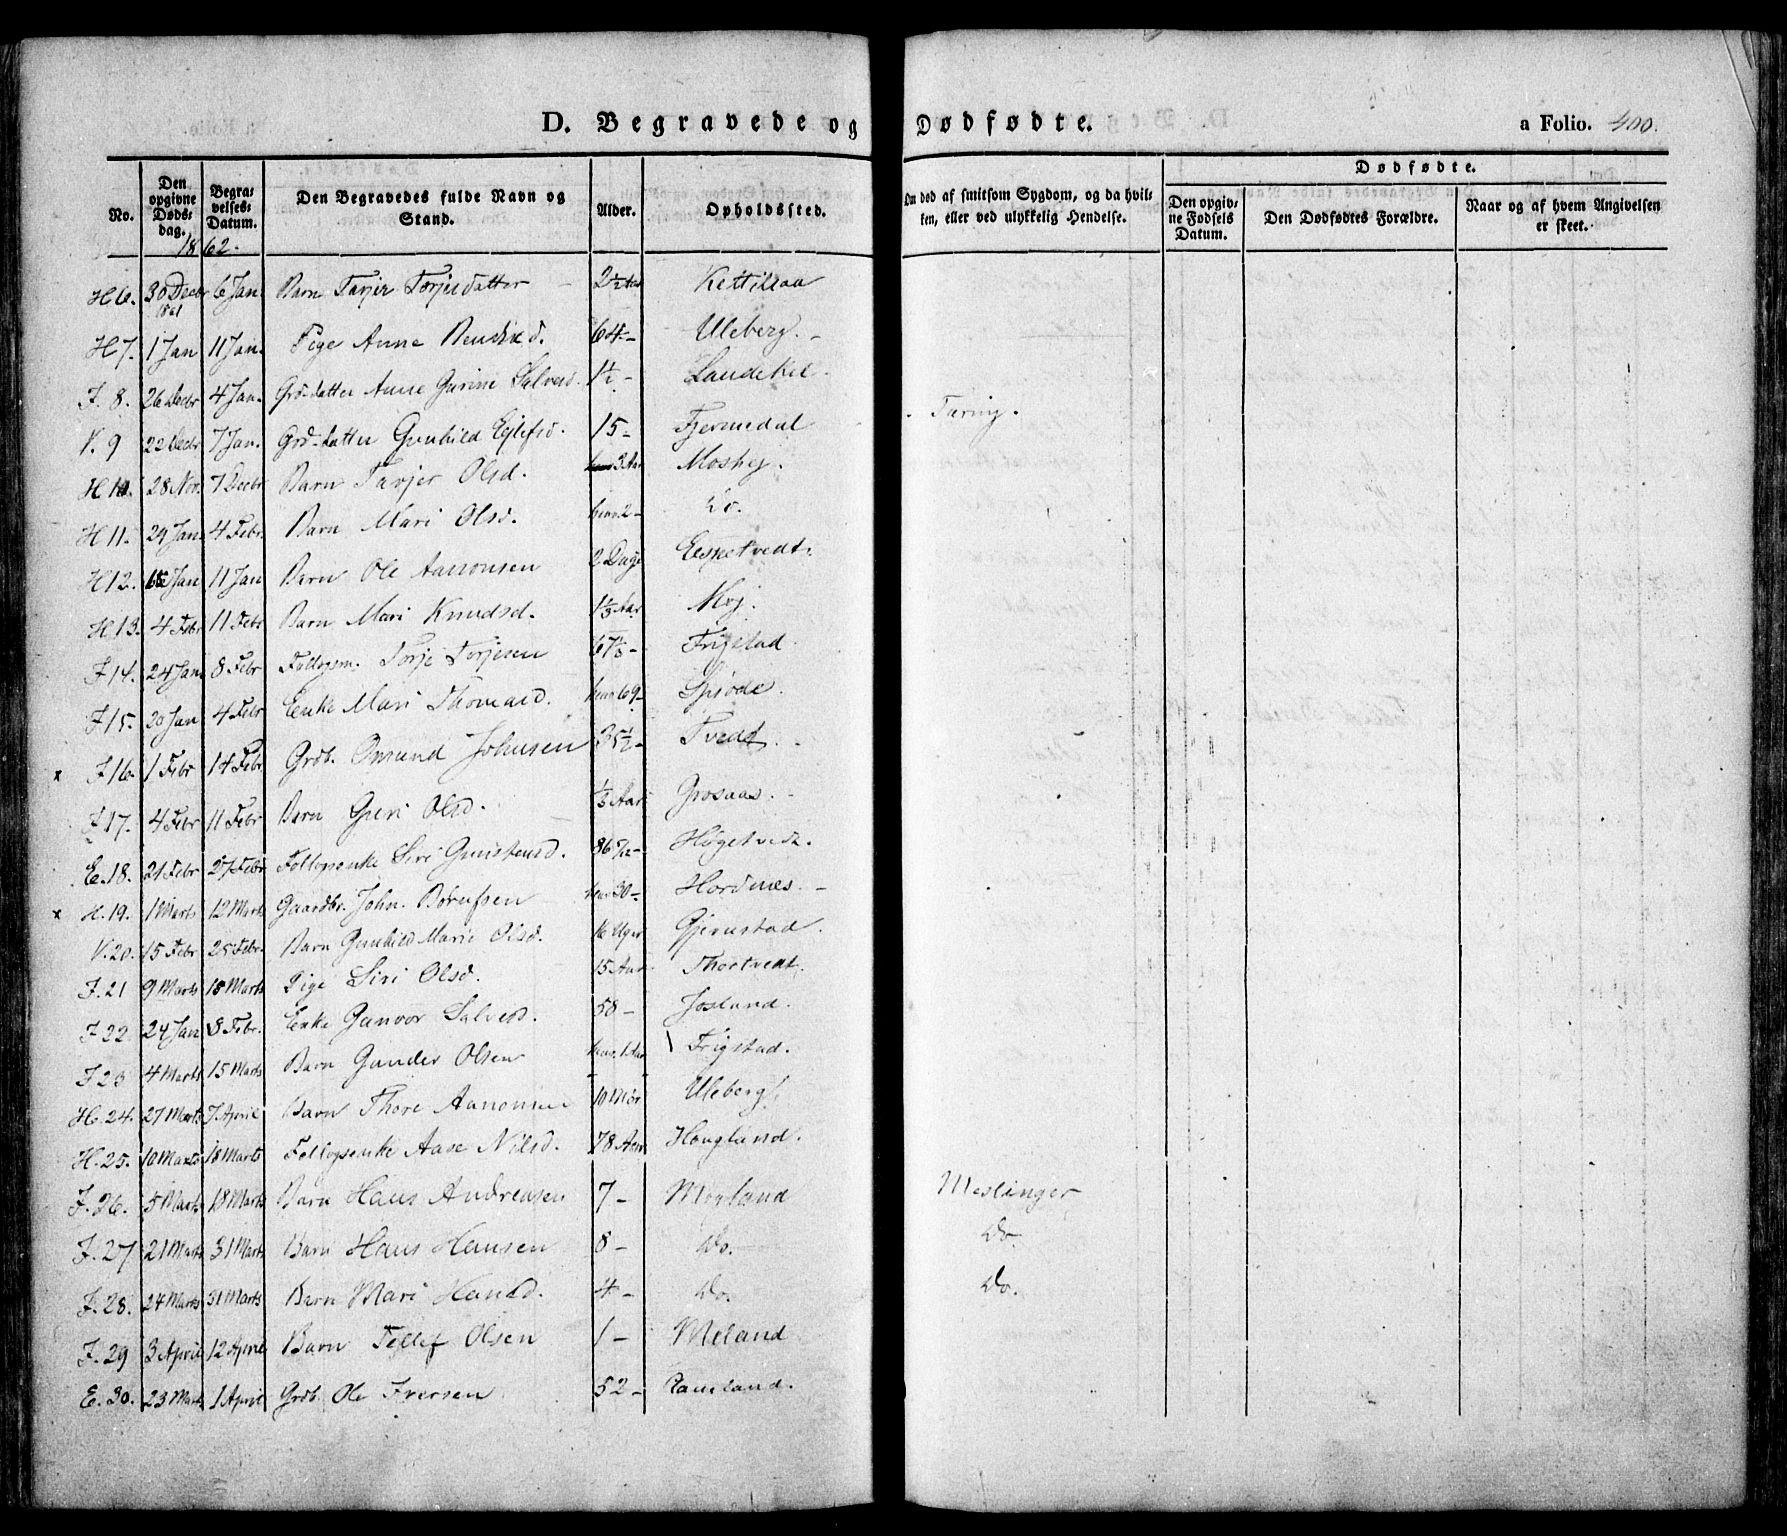 D. Begravede og Dødfødte.
a Folio. 400.
No.
Den opgivne Døds-dag.
Begra-velses-Datum.
Den Begravedes fulde Navn og Stand.
Alder.
Opholdssted.
Om død af smitsom Sygdom, og da hvil-ken, eller ved ulykkelig Hendelse.
Dødfødte.
Den opgiv-ne Fødsels Datum.
Den Dødfødtes Forældre.
Naar og af hvem Angivelsen er skeet.
1862.
H 6. 30 Decbr 1861 6 Jan. Barn Tarjer Torjesdatter 2½ Aar Kettilsaa
H 7. 1 Jan 11 Jan. Pige Anne Bendixd. 64 - Uleberg. -
F. 8. 26 Decbr 4 Jan. Grd.datter Anne Gurine Salvesd. 1½ - Landekel.
V. 9 22 Decbr 7 Jan. Grd.datter Gunhild Ejlefsd. 15 - Fjermedal Tæring.
H 10. 28 Nov. 7 Decbr Barn Tarjer Olsd. 3 Aar Moshej.
H 11. 29 Jan. 4 Febr. Barn Mari Olsd. henv. 2 - Do.
H 12. Jan 11 Jan Barn Ole Aanonsen 2 Dage Espetvedt.
H 13. 4 Febr 11 Febr Barn Mari Knudsd. 1⅓ Aar Moj.
F 14. 24 Jan 8 Febr Follogsm. Torje Torjesen 67 Frigstad.
F 15. 20 Jan 4 Febr Enke Mari Thomasd. henv 69 -
x F 16. 1 Febr 14 Febr Grdb. Omund Johnsen 35½ - Tvedt.
F 17. 4 Febr 11 Febr Barn Guri Olsd. Aar Grosaas.
E. 18. 21 Febr 27 Febr Follogsenke Siri Gunstensd. 86 - Høgetvedt.
x H. 19. 1 Marts 12 Marts Gaardbr. John. Børufsen henv 30 - Hordnes. -
V. 20. 15 Febr 25 Febr. Barn Gunhild Marie Olsd. 16 Uger Gjerustad.
F. 21 9 Marts 18 Marts Pige Siri Olsd. 15 Aar Thortvedt.
F 22. 24 Jan 8 Febr. Enke Gunvor Salvesd. 58 - Josland.
F 23 4 Marts 15 Marts Barn Gunder Olsen henv. 1 Aar Frigstad.
H. 24. 27 Marts 7 April Barn Thore Aanonsen 10 Mdr Uleberg.
H. 25. 10 Marts 18 Marts Follogsenke Aase Nilsd. 78 Aar Hougland.
F. 26. 5 Marts 18 Marts Barn Hans Andreasen 7 - Mejland Meslinger
F. 27 21 Marts 31 Marts Barn Hans Hansen 8 - Do. Do.
F. 28. 24 Marts 31 Marts Barn Mari Hansd. 4 - Do. Do.
F. 29 3 April 12 April Barn Tellef Olsen 1 - Meland
E. 30. 23 Marts 1 April Grdb. Ole Iversen 52 - Rameland.